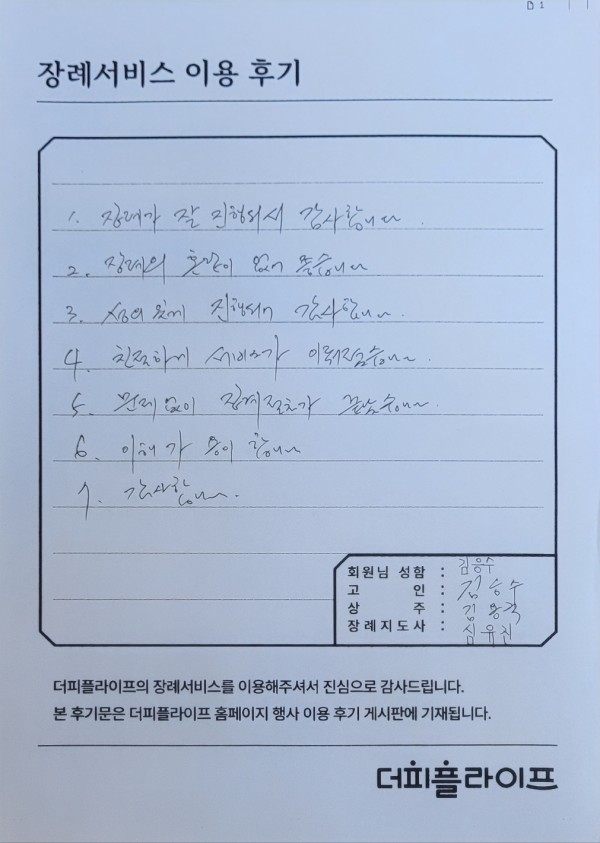 장례서비스 이용 후기
1. 장례가 잘 진행되서 감사합니다.
2. 장례의 혼란이 없어 좋습니다
3. 성의 있게 진행되어 감사합니다.
4. 친절하게 서비스가 이뤄졌습니다.
5. 문제없이 장례절차가 끝났습니다.
6. 이해가 용이 합니다
7. 감사합니다.
회원님 성함 : 김응수
고 인 : 김응수
상 주 : 김
장례지도사 : 심유진
더피플라이프의 장례서비스를 이용해주셔서 진심으로 감사드립니다.
본 후기문은 더피플라이프 홈페이지 행사 이용 후기 게시판에 기재됩니다.
더피플라이프